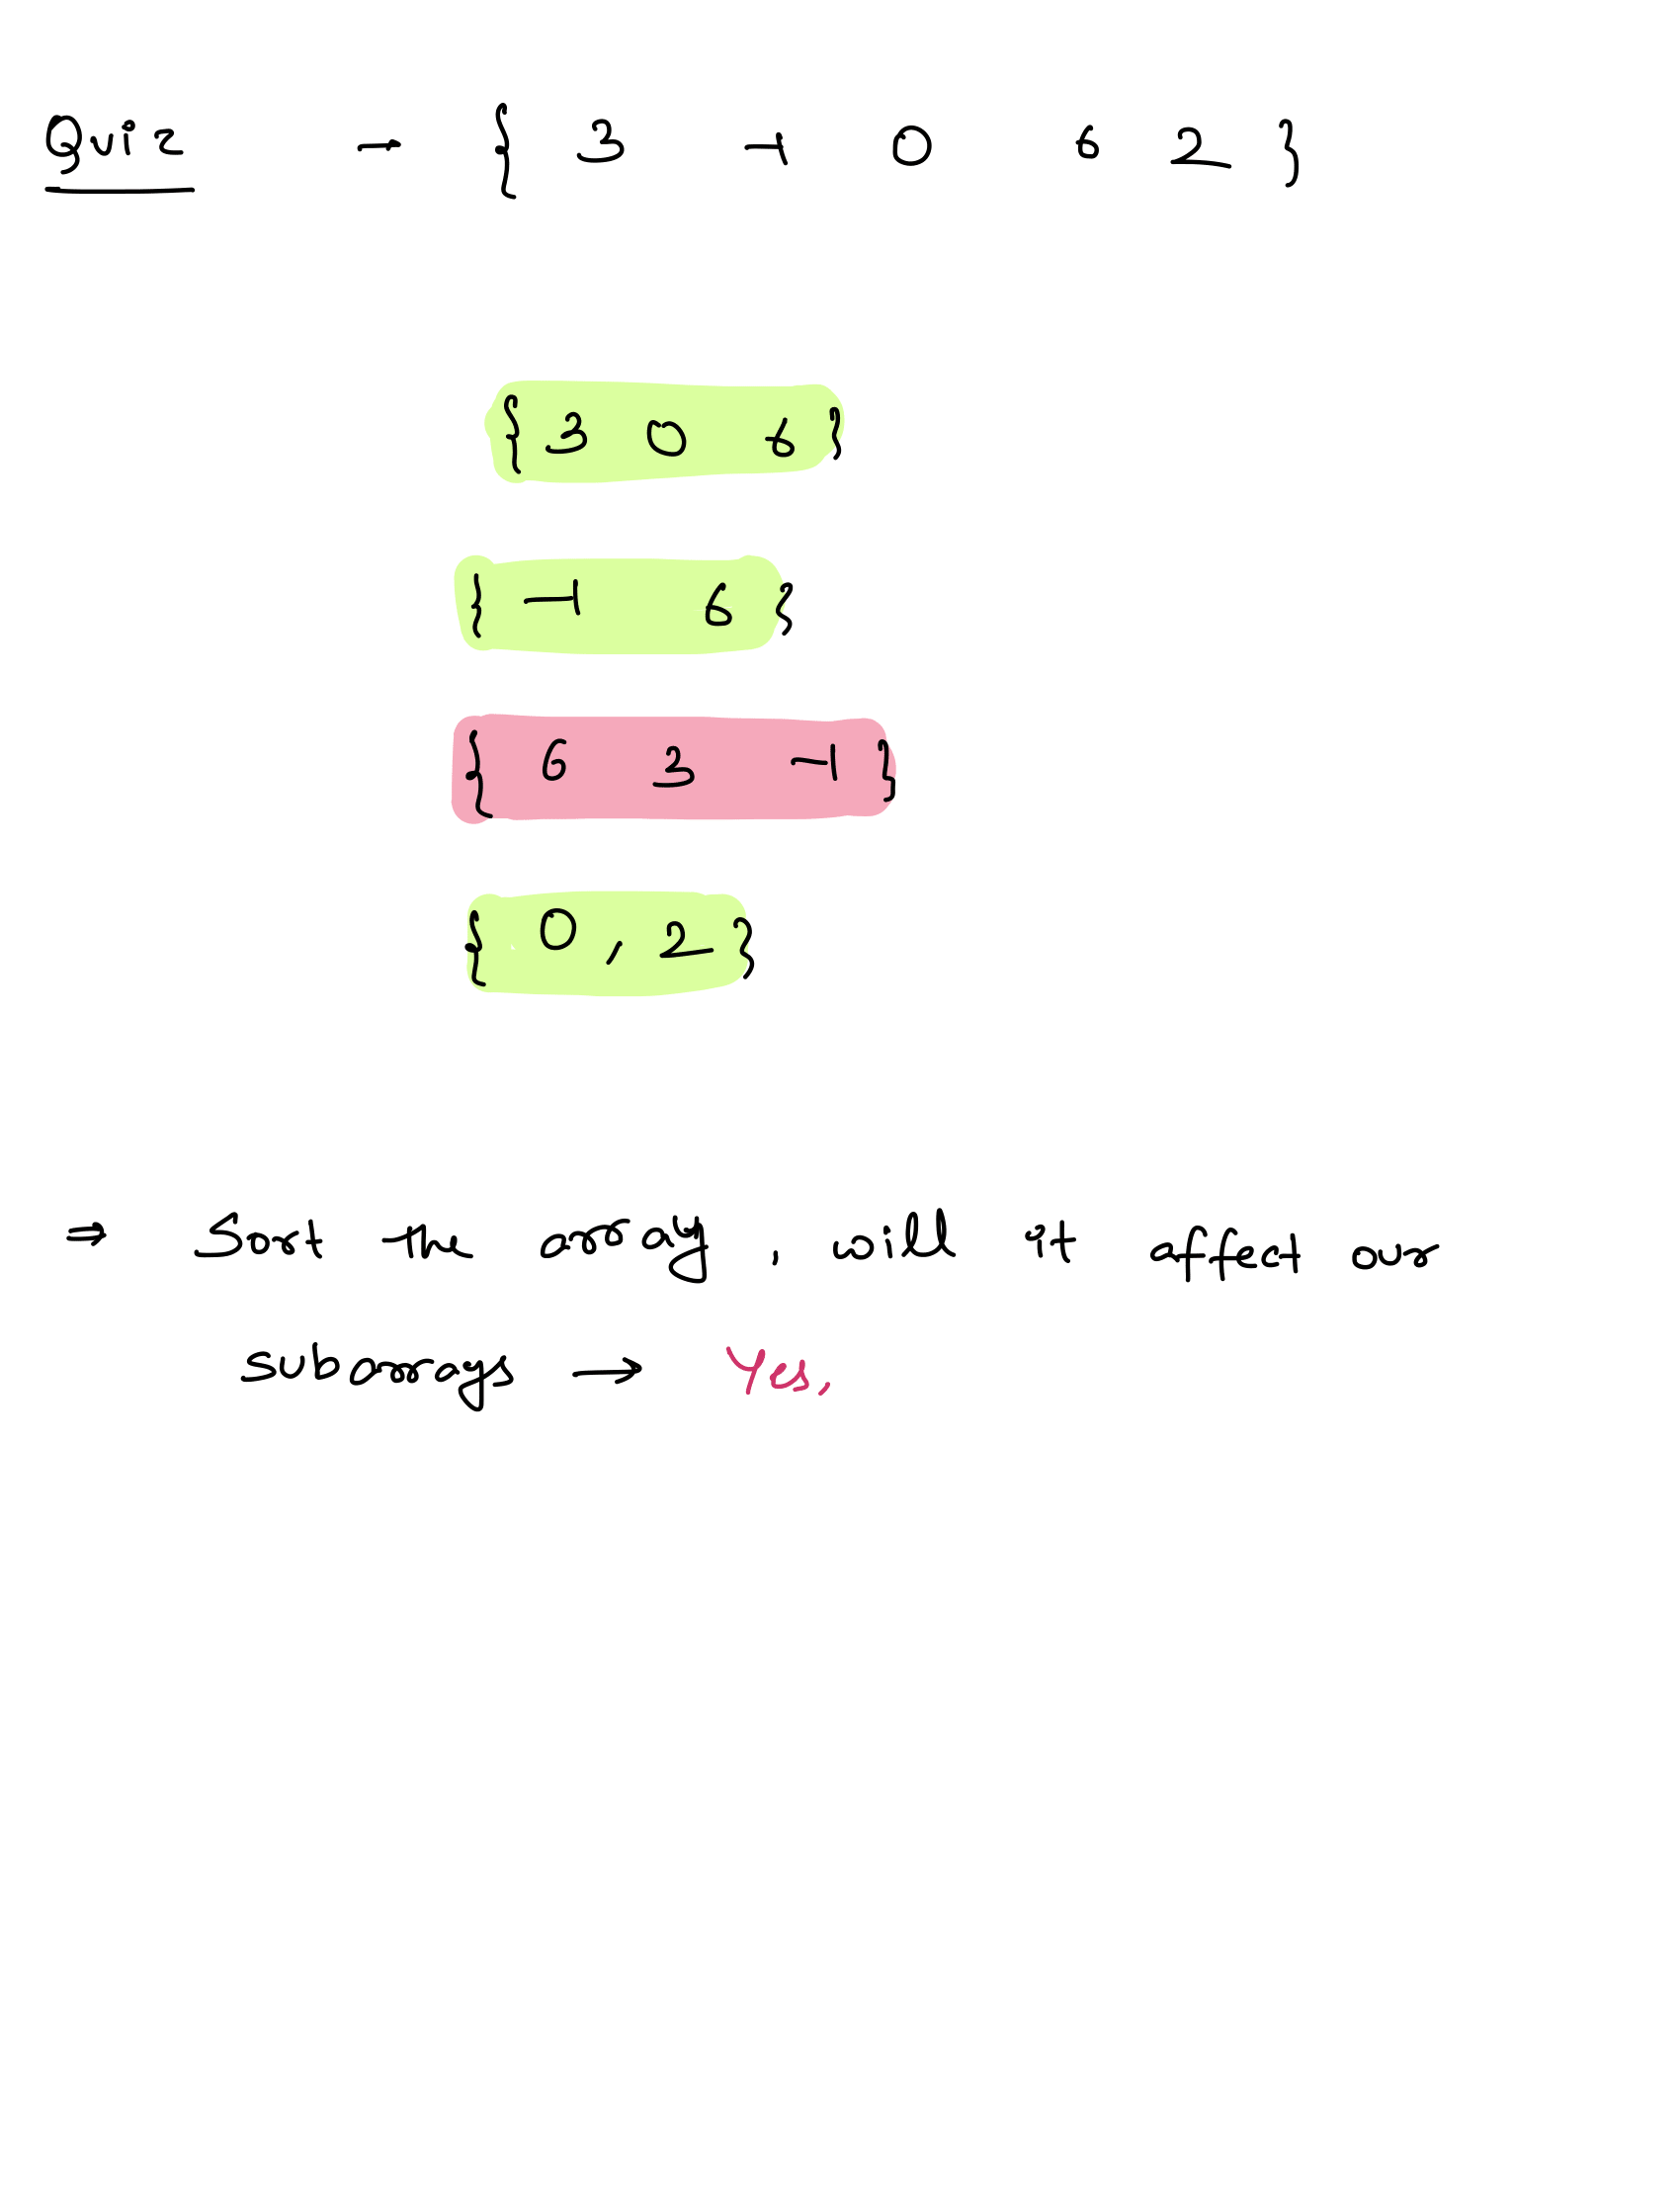 Quiz - { 3 -1 0 6 2 }
{ 3 0 6 }
{ -1 6 }
{ 6 3 -1 }
{ 0 , 2 }
⇒ Sort the array , will it affect our
subarrays → Yes.